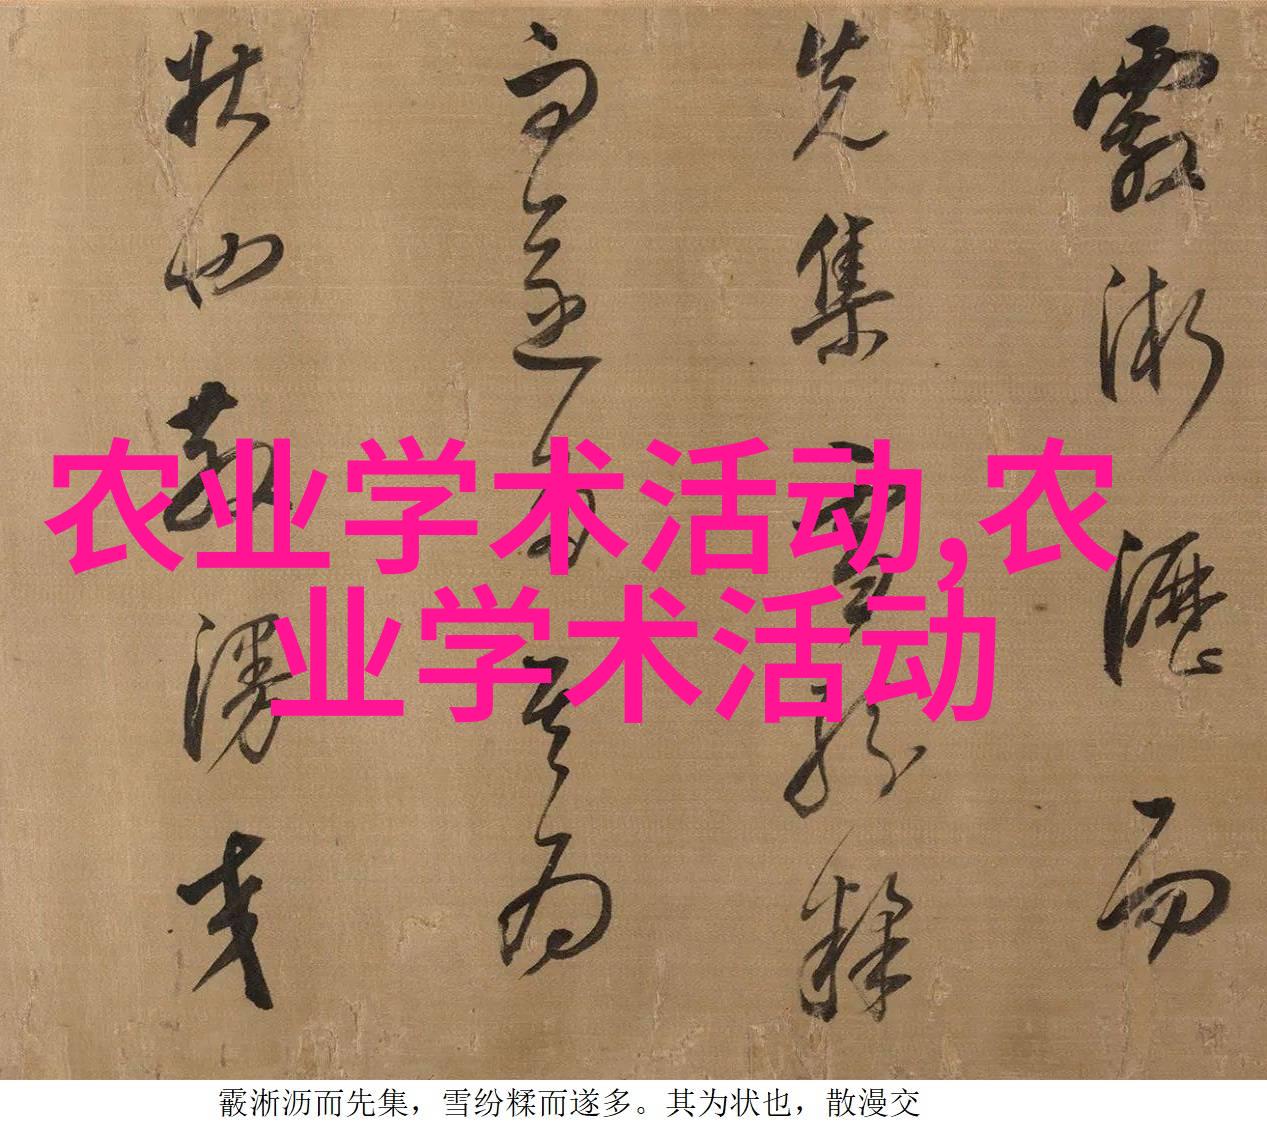 霰淅瀝而
先集雪紛糅
而遂多其為
狀也散漫交
农业学术活动,农
业学术活动
霰淅沥而先集，雪纷糅而遂多。其为状也，散漫交